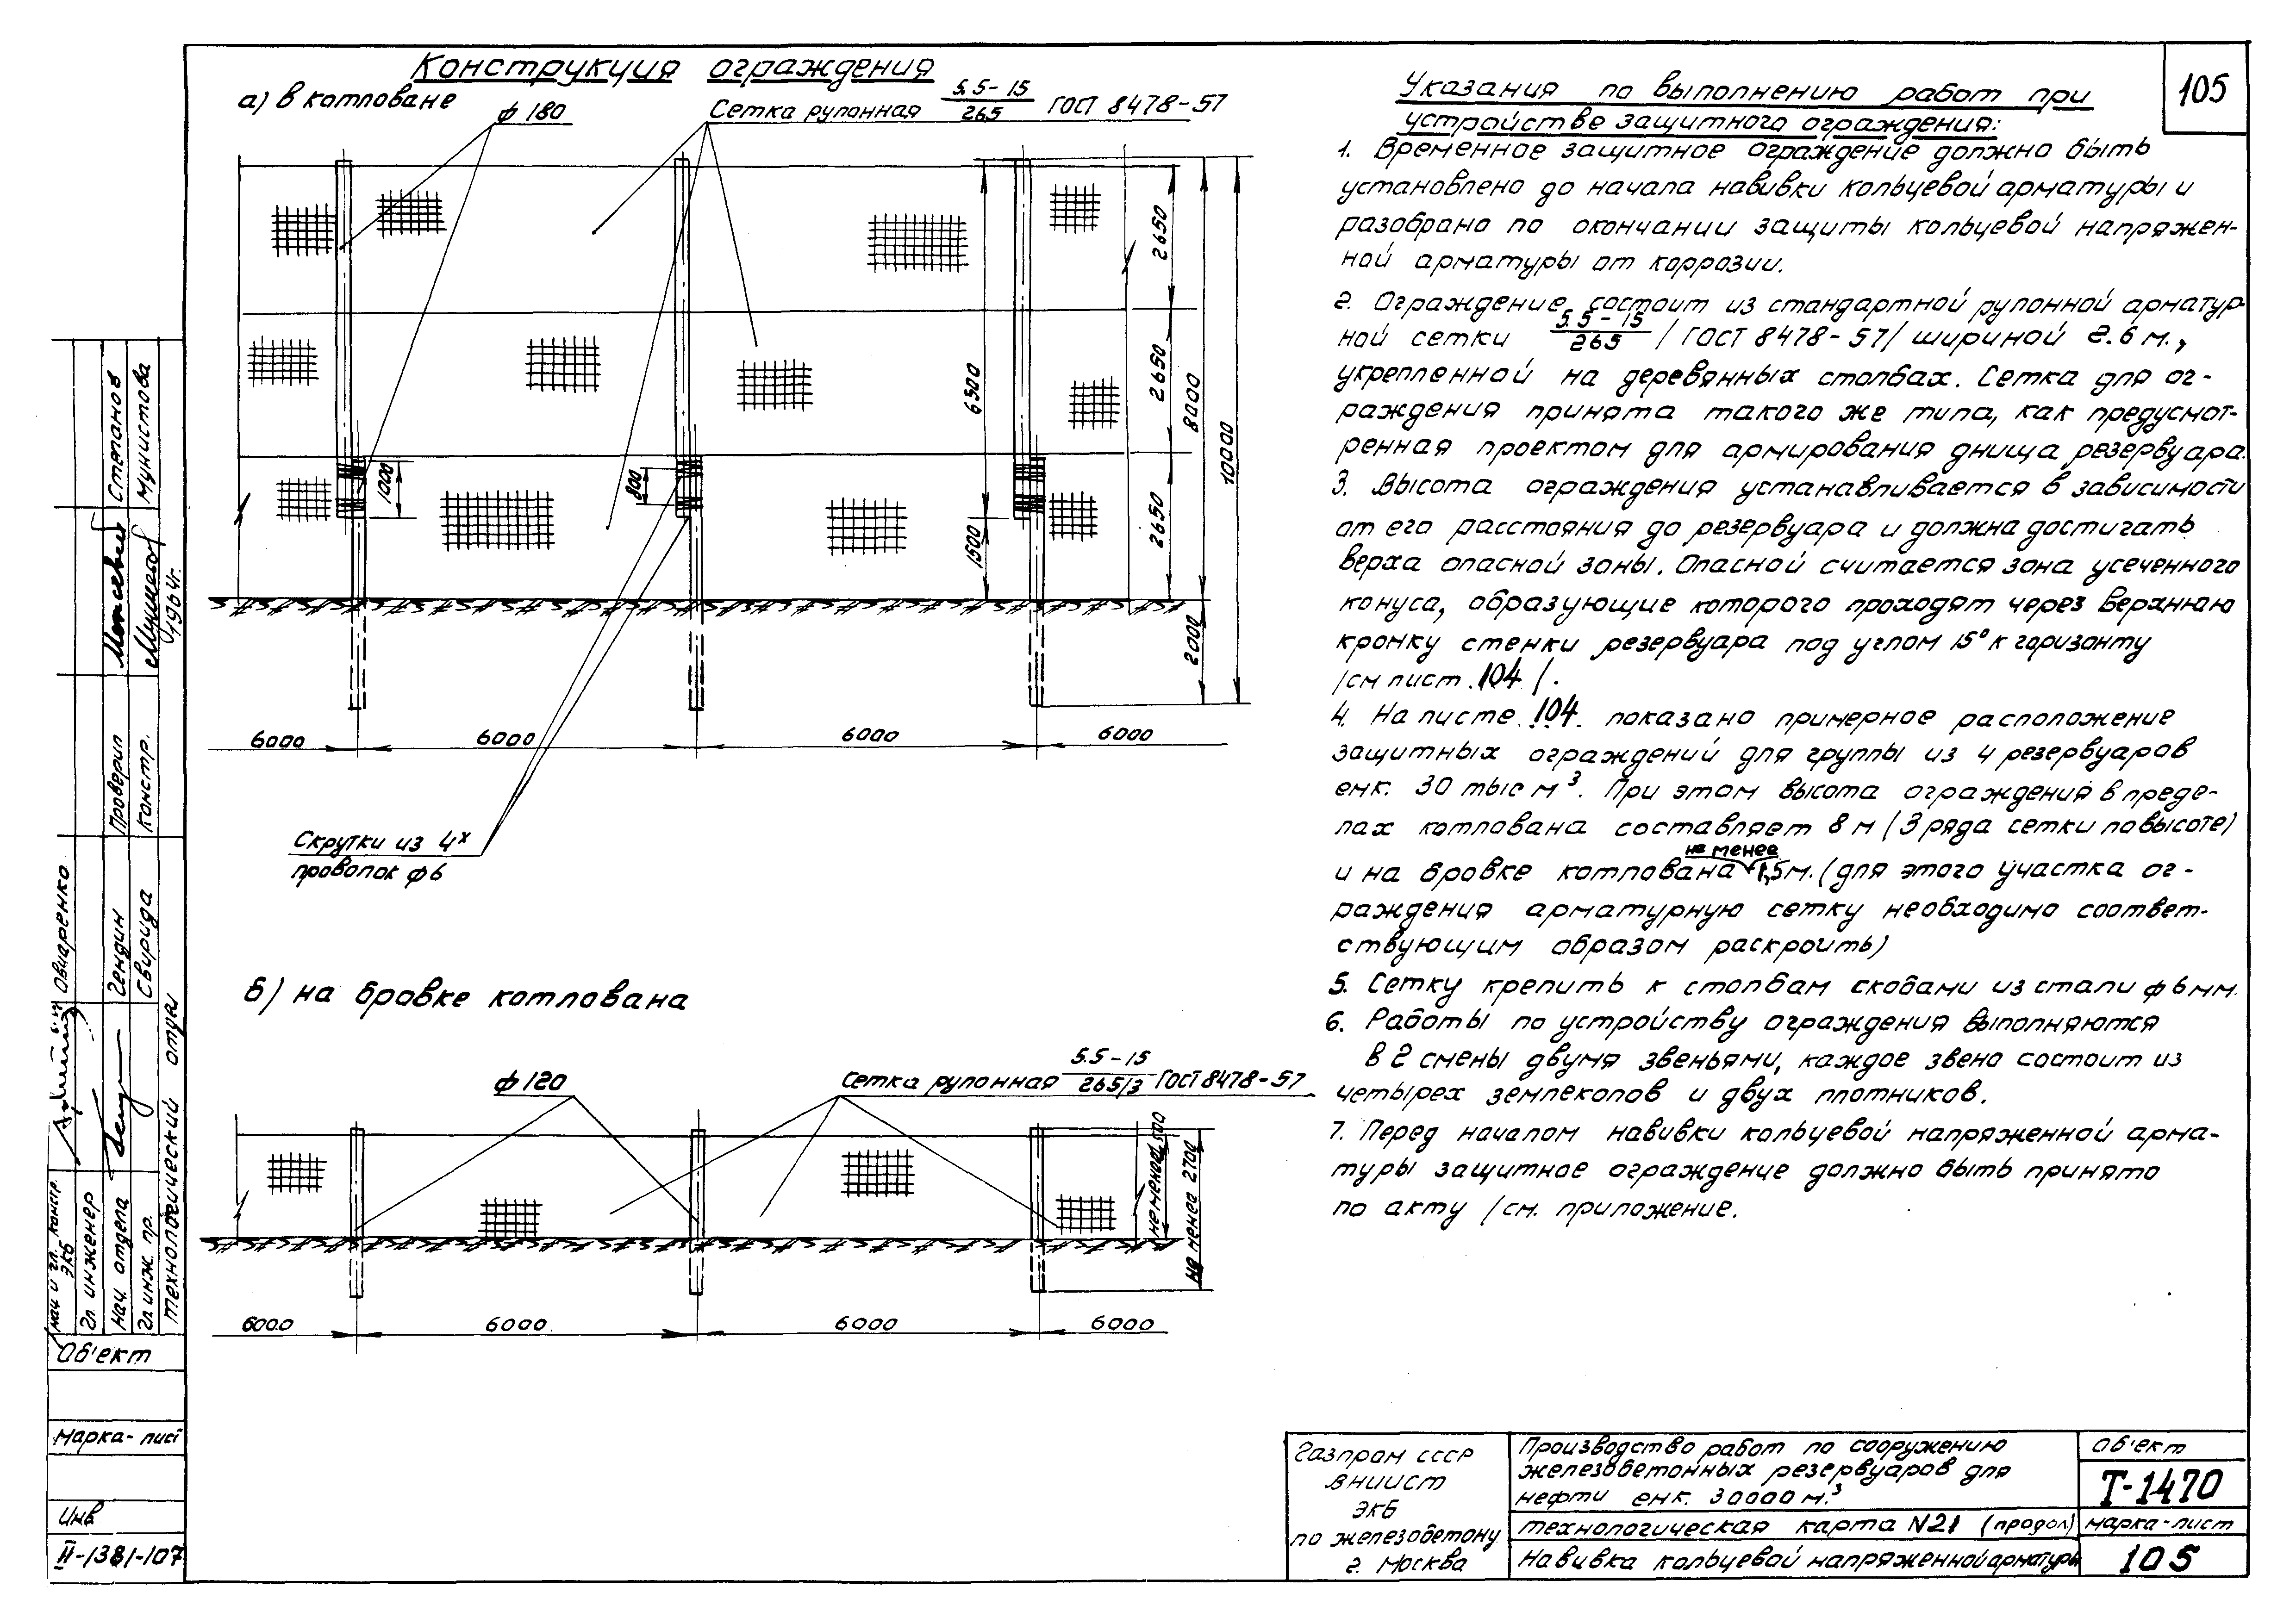 105
Конструкция ограждения
а) в котловане
ф 180
Сетка рулонная 5.5-15/265 ГОСТ 8478-57
2650
2650
2650
6500
1500
8000
2000
10000
1000
800
6000
6000
6000
6000
Скрутки из 4х
проволок ф6
б) на бровке котлована
ф 120
сетка рулонная 5.5-15/265/3 ГОСТ 8478-57
не менее 1500
не менее 2700
6000
6000
6000
6000
Указания по выполнению работ при
устройстве защитного ограждения:
1. Временное защитное ограждение должно быть
установлено до начала навивки кольцевой арматуры и
разобрано по окончании защиты кольцевой напряжен-
ной арматуры от коррозии.
2. Ограждение состоит из стандартной рулонной арматур-
ной сетки 5.5-15/265 /ГОСТ 8478-57/ шириной 2.6 м.,
укрепленной на деревянных столбах. Сетка для ог-
раждения принята такого же типа, как предусмот-
ренная проектом для армирования днища резервуара.
3. Высота ограждения устанавливается в зависимости
от его расстояния до резервуара и должна достигать
верха опасной зоны. Опасной считается зона усеченного
конуса, образующие которого проходят через верхнюю
кромку стенки резервуара под углом 15° к горизонту
/см лист. 104 /.
4. На листе. 104. показано примерное расположение
защитных ограждений для группы из 4 резервуаров
емк. 30 тыс м³. При этом высота ограждения в преде-
лах котлована составляет 8 м (3 ряда сетки по высоте)
и на бровке котлована не менее 1,5 м. (для этого участка ог-
раждения арматурную сетку необходимо соответ-
ствующим образом раскроить)
5. Сетку крепить к столбам скобами из стали ф 6 мм.
6. Работы по устройству ограждения выполняются
в 2 смены двумя звеньями, каждое звено состоит из
четырех землекопов и двух плотников.
7. Перед началом навивки кольцевой напряженной арма-
туры защитное ограждение должно быть принято
по акту /см. приложение.
Газпром СССР
ВНИИСТ
ЭКБ
по железобетону
г. Москва
Производство работ по сооружению
железобетонных резервуаров для
нефти емк. 30000 м.³
технологическая карта N21 (продол)
Навивка кольцевой напряженной арматуры
Об'ект
Т-1470
марка-лист
105
нач и гл. констр.
ЭКБ
Овчаренко
Гл. инженер
Нач. отдела
Гендин
Гл инж. пр.
Свирида
Проверил
Степанов
Констр.
Мунистова
технологический отдел
1964г.
Об'ект
Марка-лист
Инв
II-1381-107